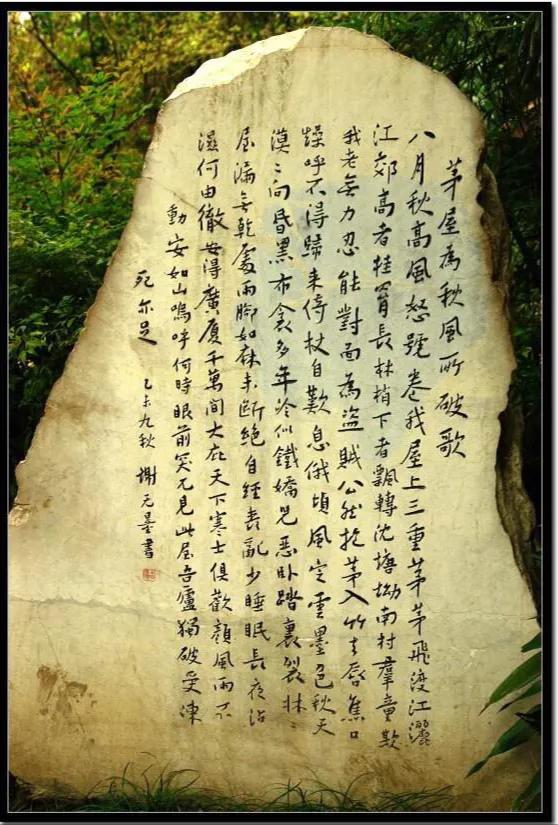 茅屋為秋風所破歌
八月秋高風怒號卷我屋上三重茅茅飛渡江灑
江郊高者挂罥長林梢下者飄轉沈塘坳南村羣童欺
我老無力忍能對面為盜賊公然抱茅入竹去唇焦口
燥呼不得歸來倚杖自歎息俄頃風定雲墨色秋天
漠〻向昏黑布衾多年冷似鐵嬌兒惡臥踏裏裂牀〻
屋漏無乾處雨脚如麻未斷絕自經喪亂少睡眠長夜沾
濕何由徹安得廣廈千萬間大庇天下寒士俱歡顏風雨不
動安如山嗚呼何時眼前突兀見此屋吾廬獨破受凍
死亦足 乙未九秋 謝无量書